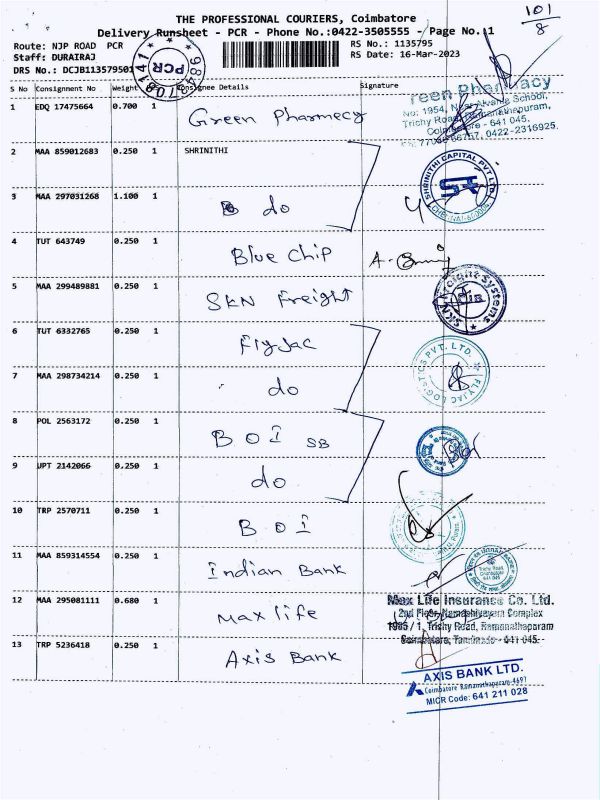 101
8
THE PROFESSIONAL COURIERS, Coimbatore
Delivery Runsheet - PCR - Phone No.:0422-3505555 - Page No.:1
Route: NJP ROAD PCR
RS No.: 1135795
Staff: DURAIRAJ
RS Date: 16-Mar-2023
DRS No.: DCJB113579501
PCR
S No Consignment No Weight Consignee Details Signature
1 EDQ 17475664 0.700 1 Green Pharmecy
Green Pharmacy
No: 1954, Near Alvernia School,
Trichy Road, Ramanathapuram,
Coimbatore - 641 045.
0422-2316925.
2 MAA 859012683 0.250 1 SHRINITHI
SHRINITHI CAPITAL PVT LTD
3 MAA 297031268 1.100 1 do
4 TUT 643749 0.250 1 Blue Chip
5 MAA 299489881 0.250 1 SKN Freight
SKN Freight Systems
6 TUT 6332765 0.250 1 Flyjac
FLYJAC LOGISTICS PVT. LTD.
7 MAA 298734214 0.250 1 do
8 POL 2563172 0.250 1 BOI SB
9 UPT 2142066 0.250 1 do
10 TRP 2570711 0.250 1 BOI
11 MAA 859314554 0.250 1 Indian Bank
Trichy Road,
Coimbatore
641 045
12 MAA 295081111 0.680 1 Max life
Max Life Insurance Co. Ltd.
2nd Floor, Complex
1985 / 1, Trichy Road, Ramanathapuram
Coimbatore, Tamilnadu - 641 045.
13 TRP 5236418 0.250 1 Axis Bank
AXIS BANK LTD.
Coimbatore Ramanathapuram
MICR Code: 641 211 028